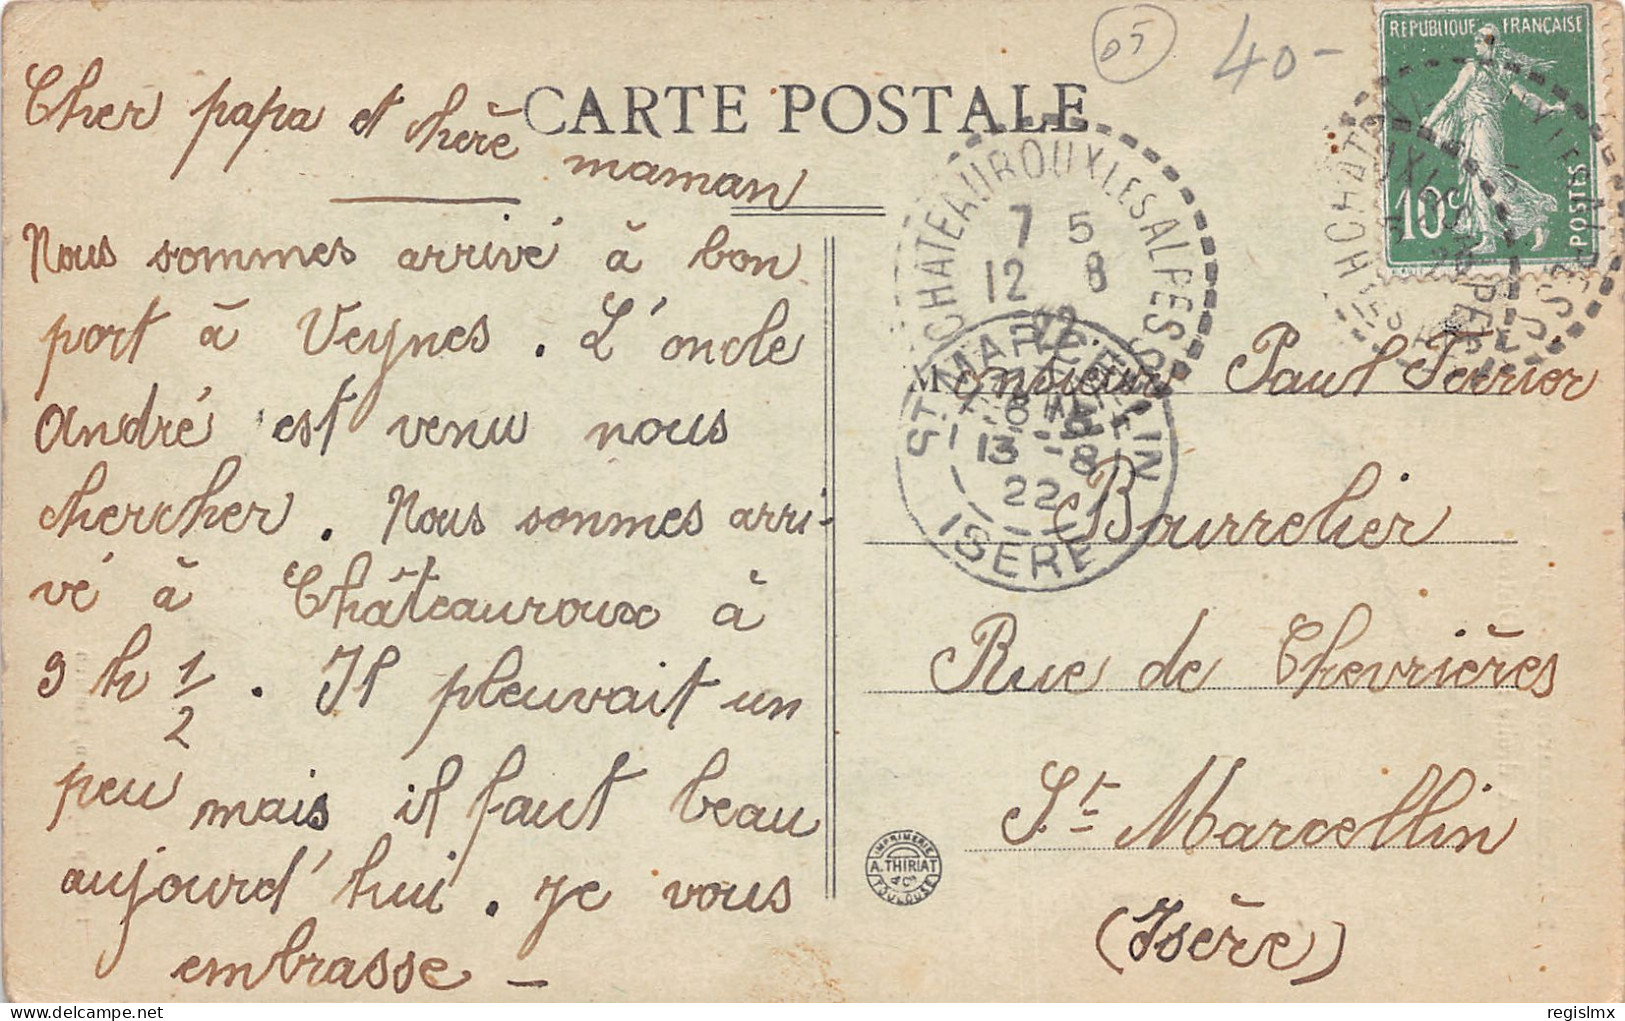 05
40-
REPUBLIQUE FRANÇAISE
10c
POSTES
CARTE POSTALE
Cher papa et chère
maman
Nous sommes arrivé à bon
port à Veynes. L'oncle
André est venu nous
chercher. Nous sommes arri-
vé à Châteauroux à
9 h 1/2. Il pleuvait un
peu mais il faut beau
aujourd'hui. Je vous
embrasse -
CHATEAUROUX LES ALPES
7 5
12 8
22
ST MARCELLIN
13 - 8
22
ISÈRE
Monsieur Paul Ferrior
Bourrelier
Rue de Chevrières
St Marcellin
(Isère)
IMPRIMERIE
A. THIRIAT
& Cie
TOULOUSE
regislmx